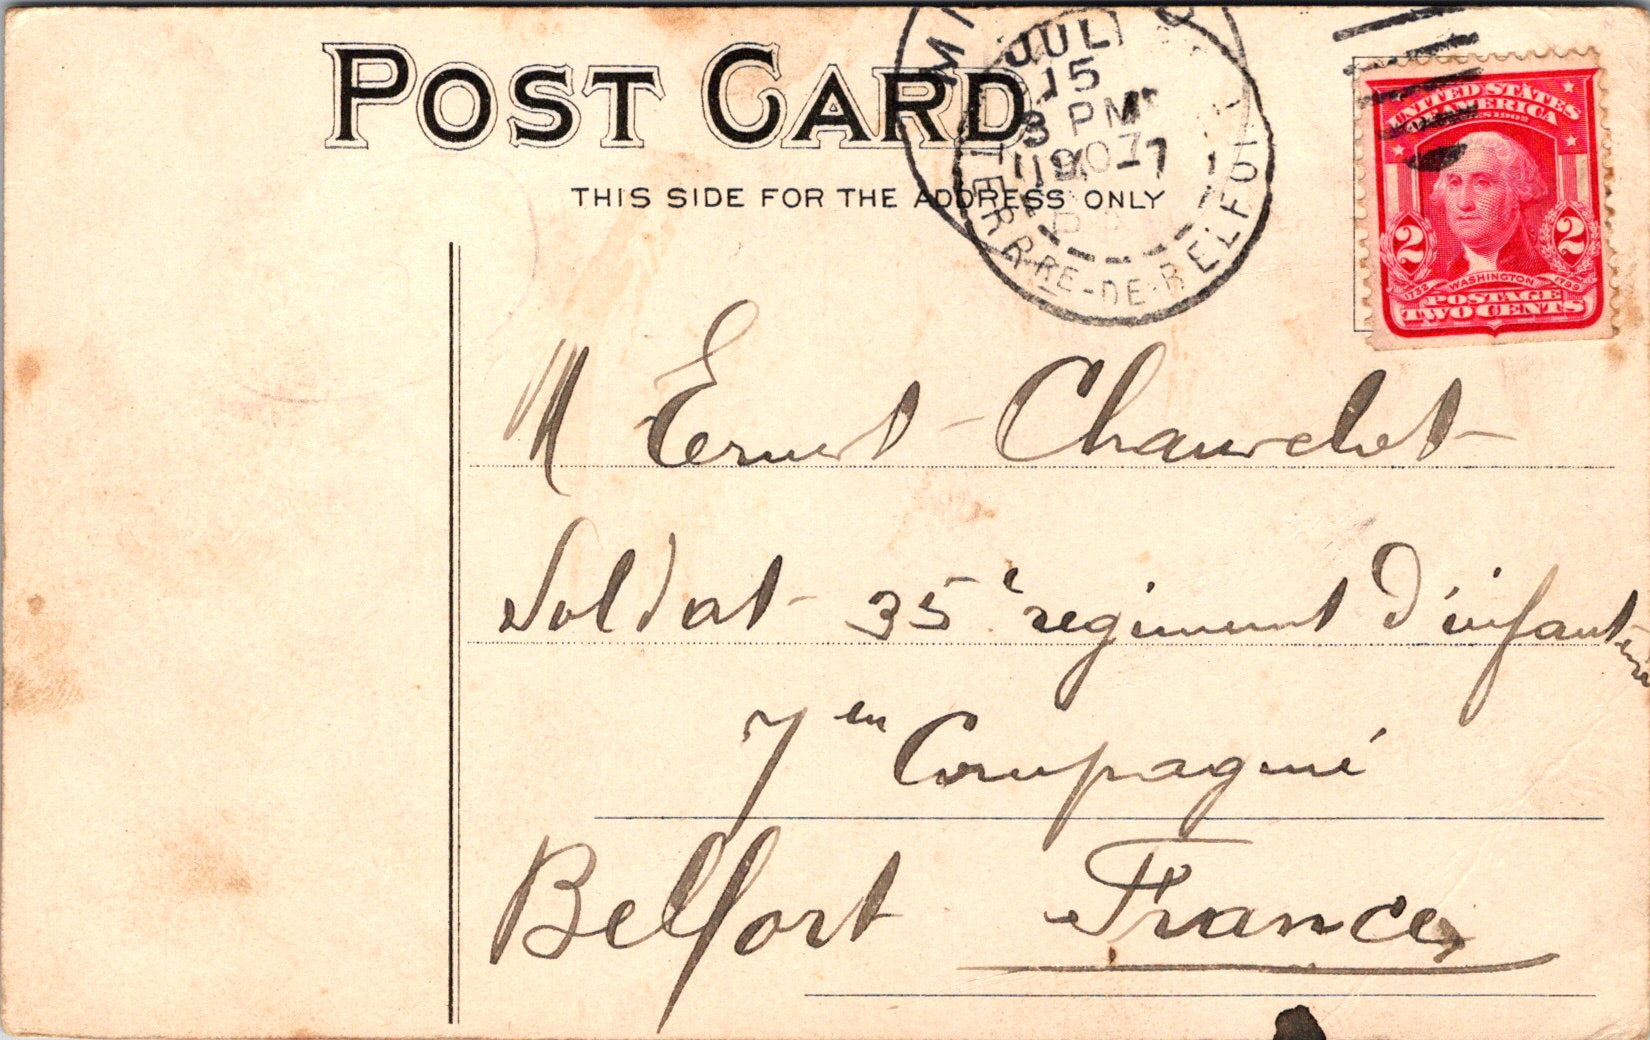 POST CARD
THIS SIDE FOR THE ADDRESS ONLY
JUL
15
8 PM
1907
TERRRE-DE-BELFORT
UNITED STATES
OF AMERICA
SERIES 1902
2 2
1732 WASHINGTON 1799
POSTAGE
TWO CENTS
M Ernest Chauvelot
Soldat 35e regiment d'infanterie
7em Compagnie
Belfort France